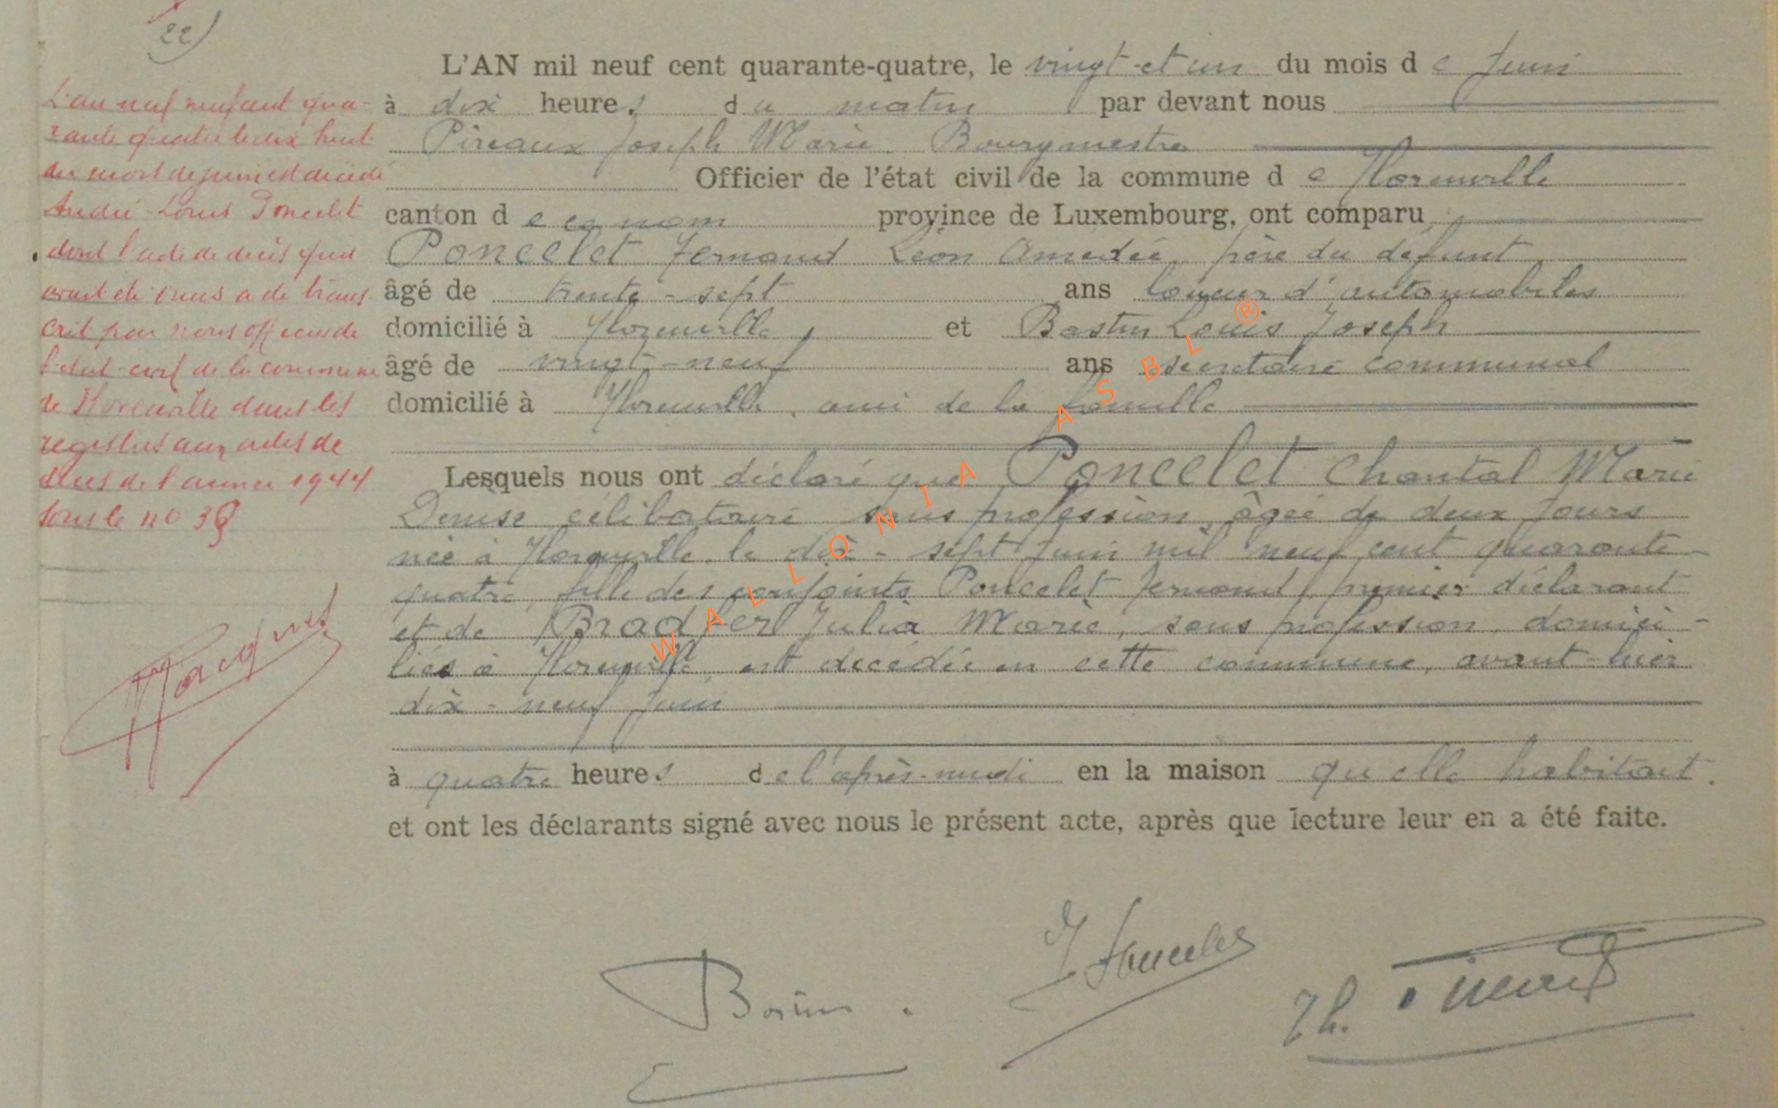 22)
L'an neuf neuf cent qua-
rante quatre le dix huit
du mois de juin est décédé
André Louis Poncelet
dont l'acte de décès qui
avait été omis a été trans
crit par nous officier de
l'état-civil de la commune
de Florenville dans les
registres aux actes de
décès de l'année 1944
sous le no 38
Jacques
L'AN mil neuf cent quarante-quatre, le vingt-et-un du mois de Juin
à dix heures du matin par devant nous
Pireaux Joseph Marie Bourgmestre
Officier de l'état civil de la commune de Florenville
canton de ce nom province de Luxembourg, ont comparu
Poncelet Fernand Léon Amedée, père du défunt
âgé de trente-sept ans loueur d'automobiles
domicilié à Florenville, et Bastin Louis Joseph
âgé de vingt-neuf ans secrétaire communal
domicilié à Florenville, ami de la famille
Lesquels nous ont déclaré que Poncelet Chantal Marie
Denise célibataire sans profession, âgée de deux jours
née à Florenville, le dix-sept juin mil neuf cent quarante-
quatre, fille des conjoints Poncelet Fernand, premier déclarant
et de Bradfer Julia Marie, sans profession, domici-
liés à Florenville, est décédée en cette commune, avant-hier
dix-neuf juin
à quatre heures de l'après-midi en la maison qu'elle habitait.
et ont les déclarants signé avec nous le présent acte, après que lecture leur en a été faite.
WALLONIA ASBL ®